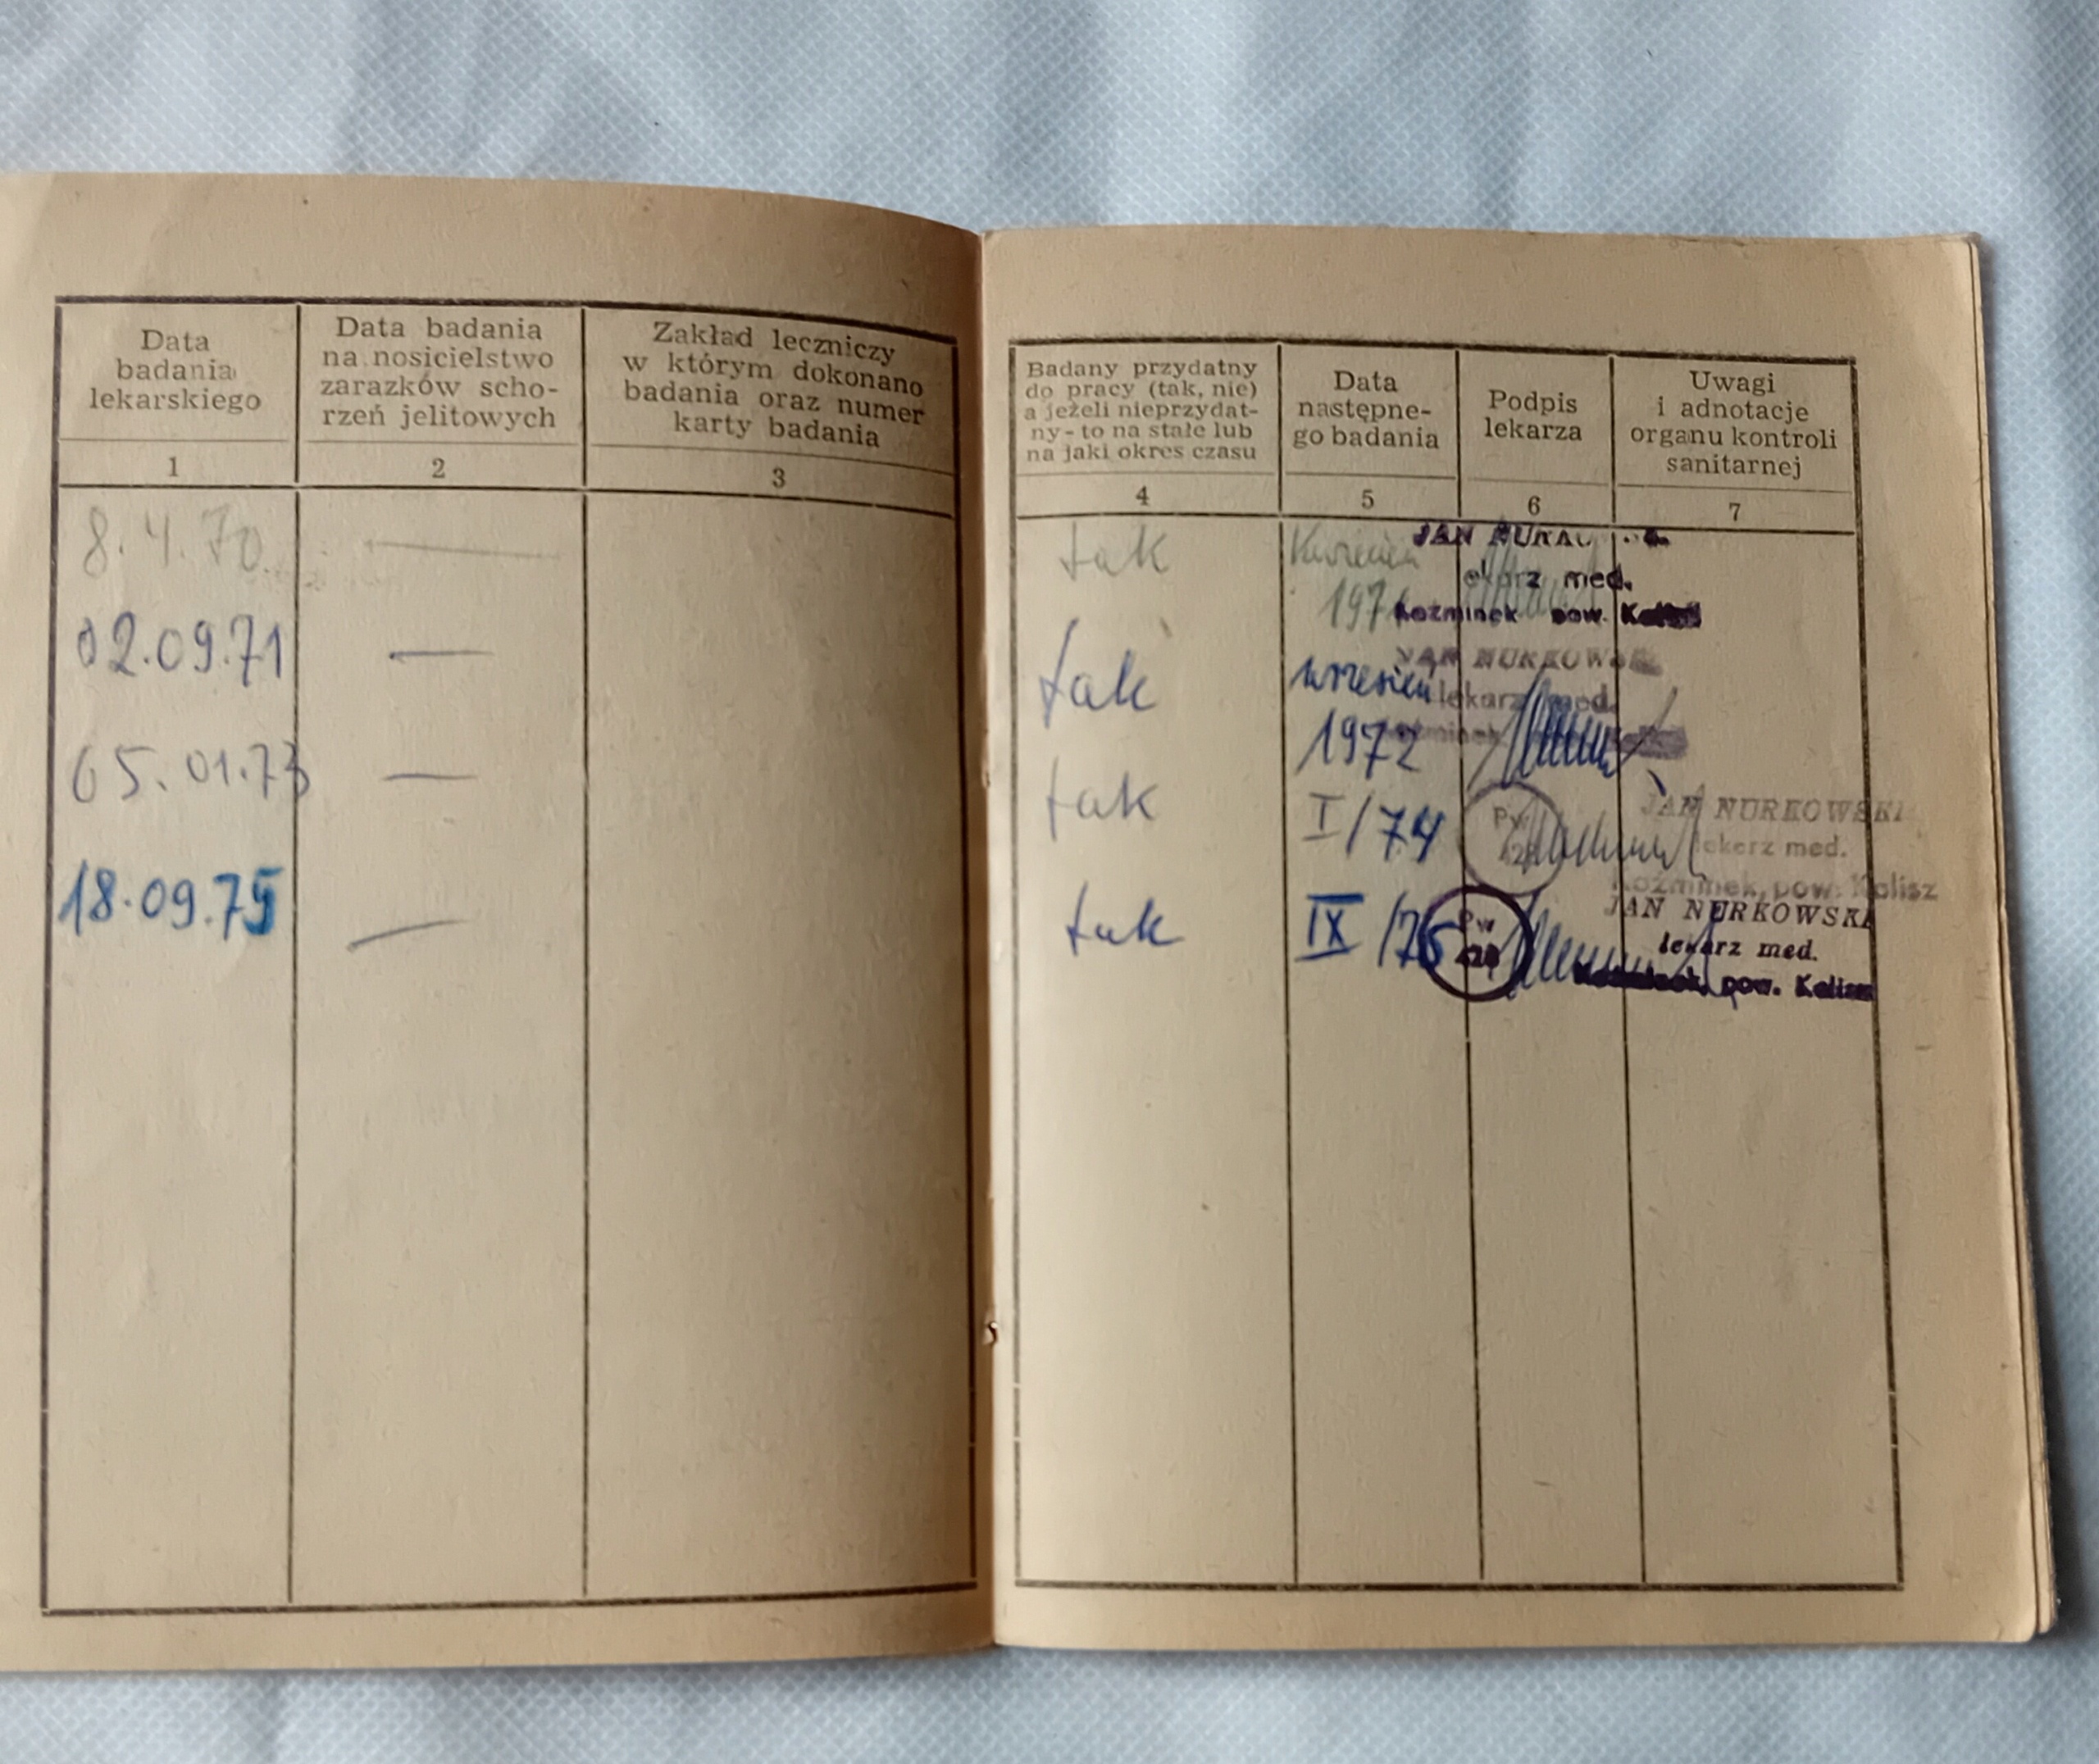 Data
badania
lekarskiego
Data badania
na nosicielstwo
zarazków scho-
rzeń jelitowych
Zakład leczniczy
w którym dokonano
badania oraz numer
karty badania
1
2
3
8.4.70
02.09.71
05.01.73
18.09.75
Badany przydatny
do pracy (tak, nie)
a jeżeli nieprzydat-
ny - to na stałe lub
na jaki okres czasu
Data
następne-
go badania
Podpis
lekarza
Uwagi
i adnotacje
organu kontroli
sanitarnej
4
5
6
7
tak
Kwiecień
197
JAN
med.
Koźminek pow.
tak
wrzesień
1972
JAN NURKOWSKI
lekarz med.
tak
I/74
Pw
428
JAN NURKOWSKI
lekarz med.
Koźminek, pow. Kalisz
tak
IX/76
Pw
428
JAN NURKOWSKI
lekarz med.
Koźminek, pow. Kalisz